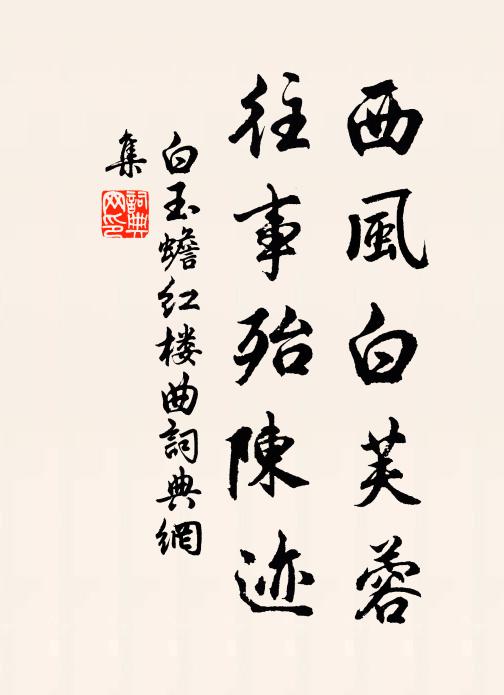 西風白芙蓉
往事殆陳迹
白玉蟾红楼曲詞典網
集
詞典
网印